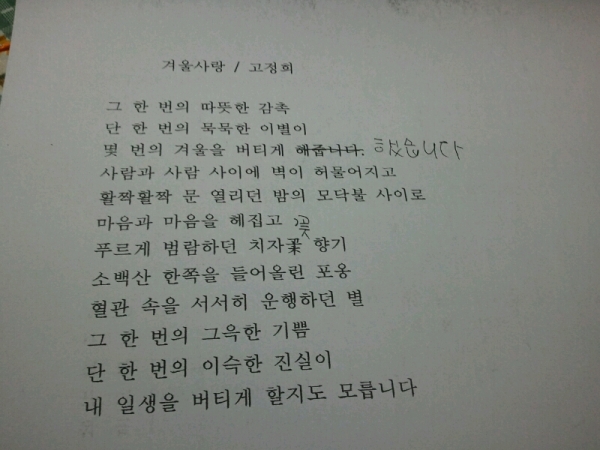 겨울사랑 / 고정희
그 한 번의 따뜻한 감촉
단 한 번의 묵묵한 이별이
몇 번의 겨울을 버티게 해줍니다. 했습니다
사람과 사람 사이에 벽이 허물어지고
활짝활짝 문 열리던 밤의 모닥불 사이로
마음과 마음을 헤집고 꽃
푸르게 범람하던 치자꽃 향기
소백산 한쪽을 들어올린 포옹
혈관 속을 서서히 운행하던 별
그 한 번의 그윽한 기쁨
단 한 번의 이슥한 진실이
내 일생을 버티게 할지도 모릅니다